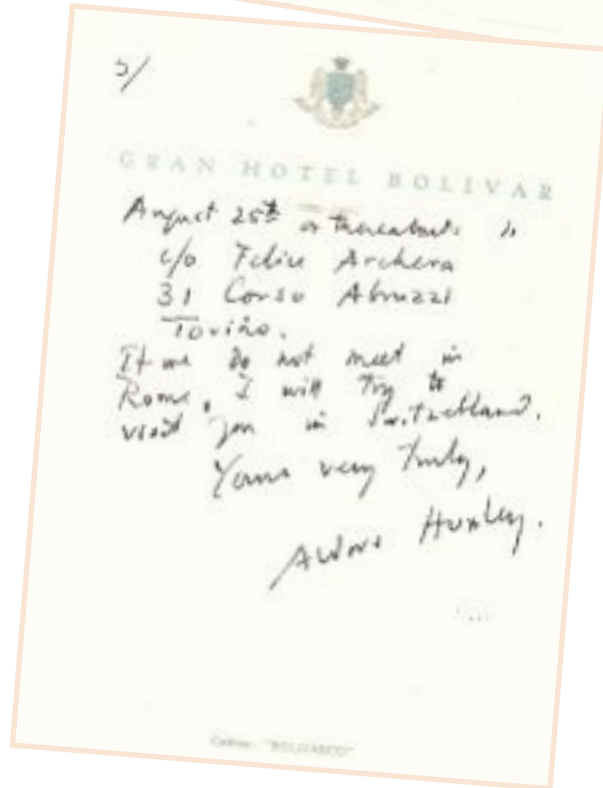 3/
GRAN HOTEL BOLIVAR
August 25th or thereabouts is
c/o Felice Archera
31 Corso Abruzzi
Torino.
If we do not meet in
Rome, I will try to
visit you in Switzerland.
Yours very truly,
Aldous Huxley.